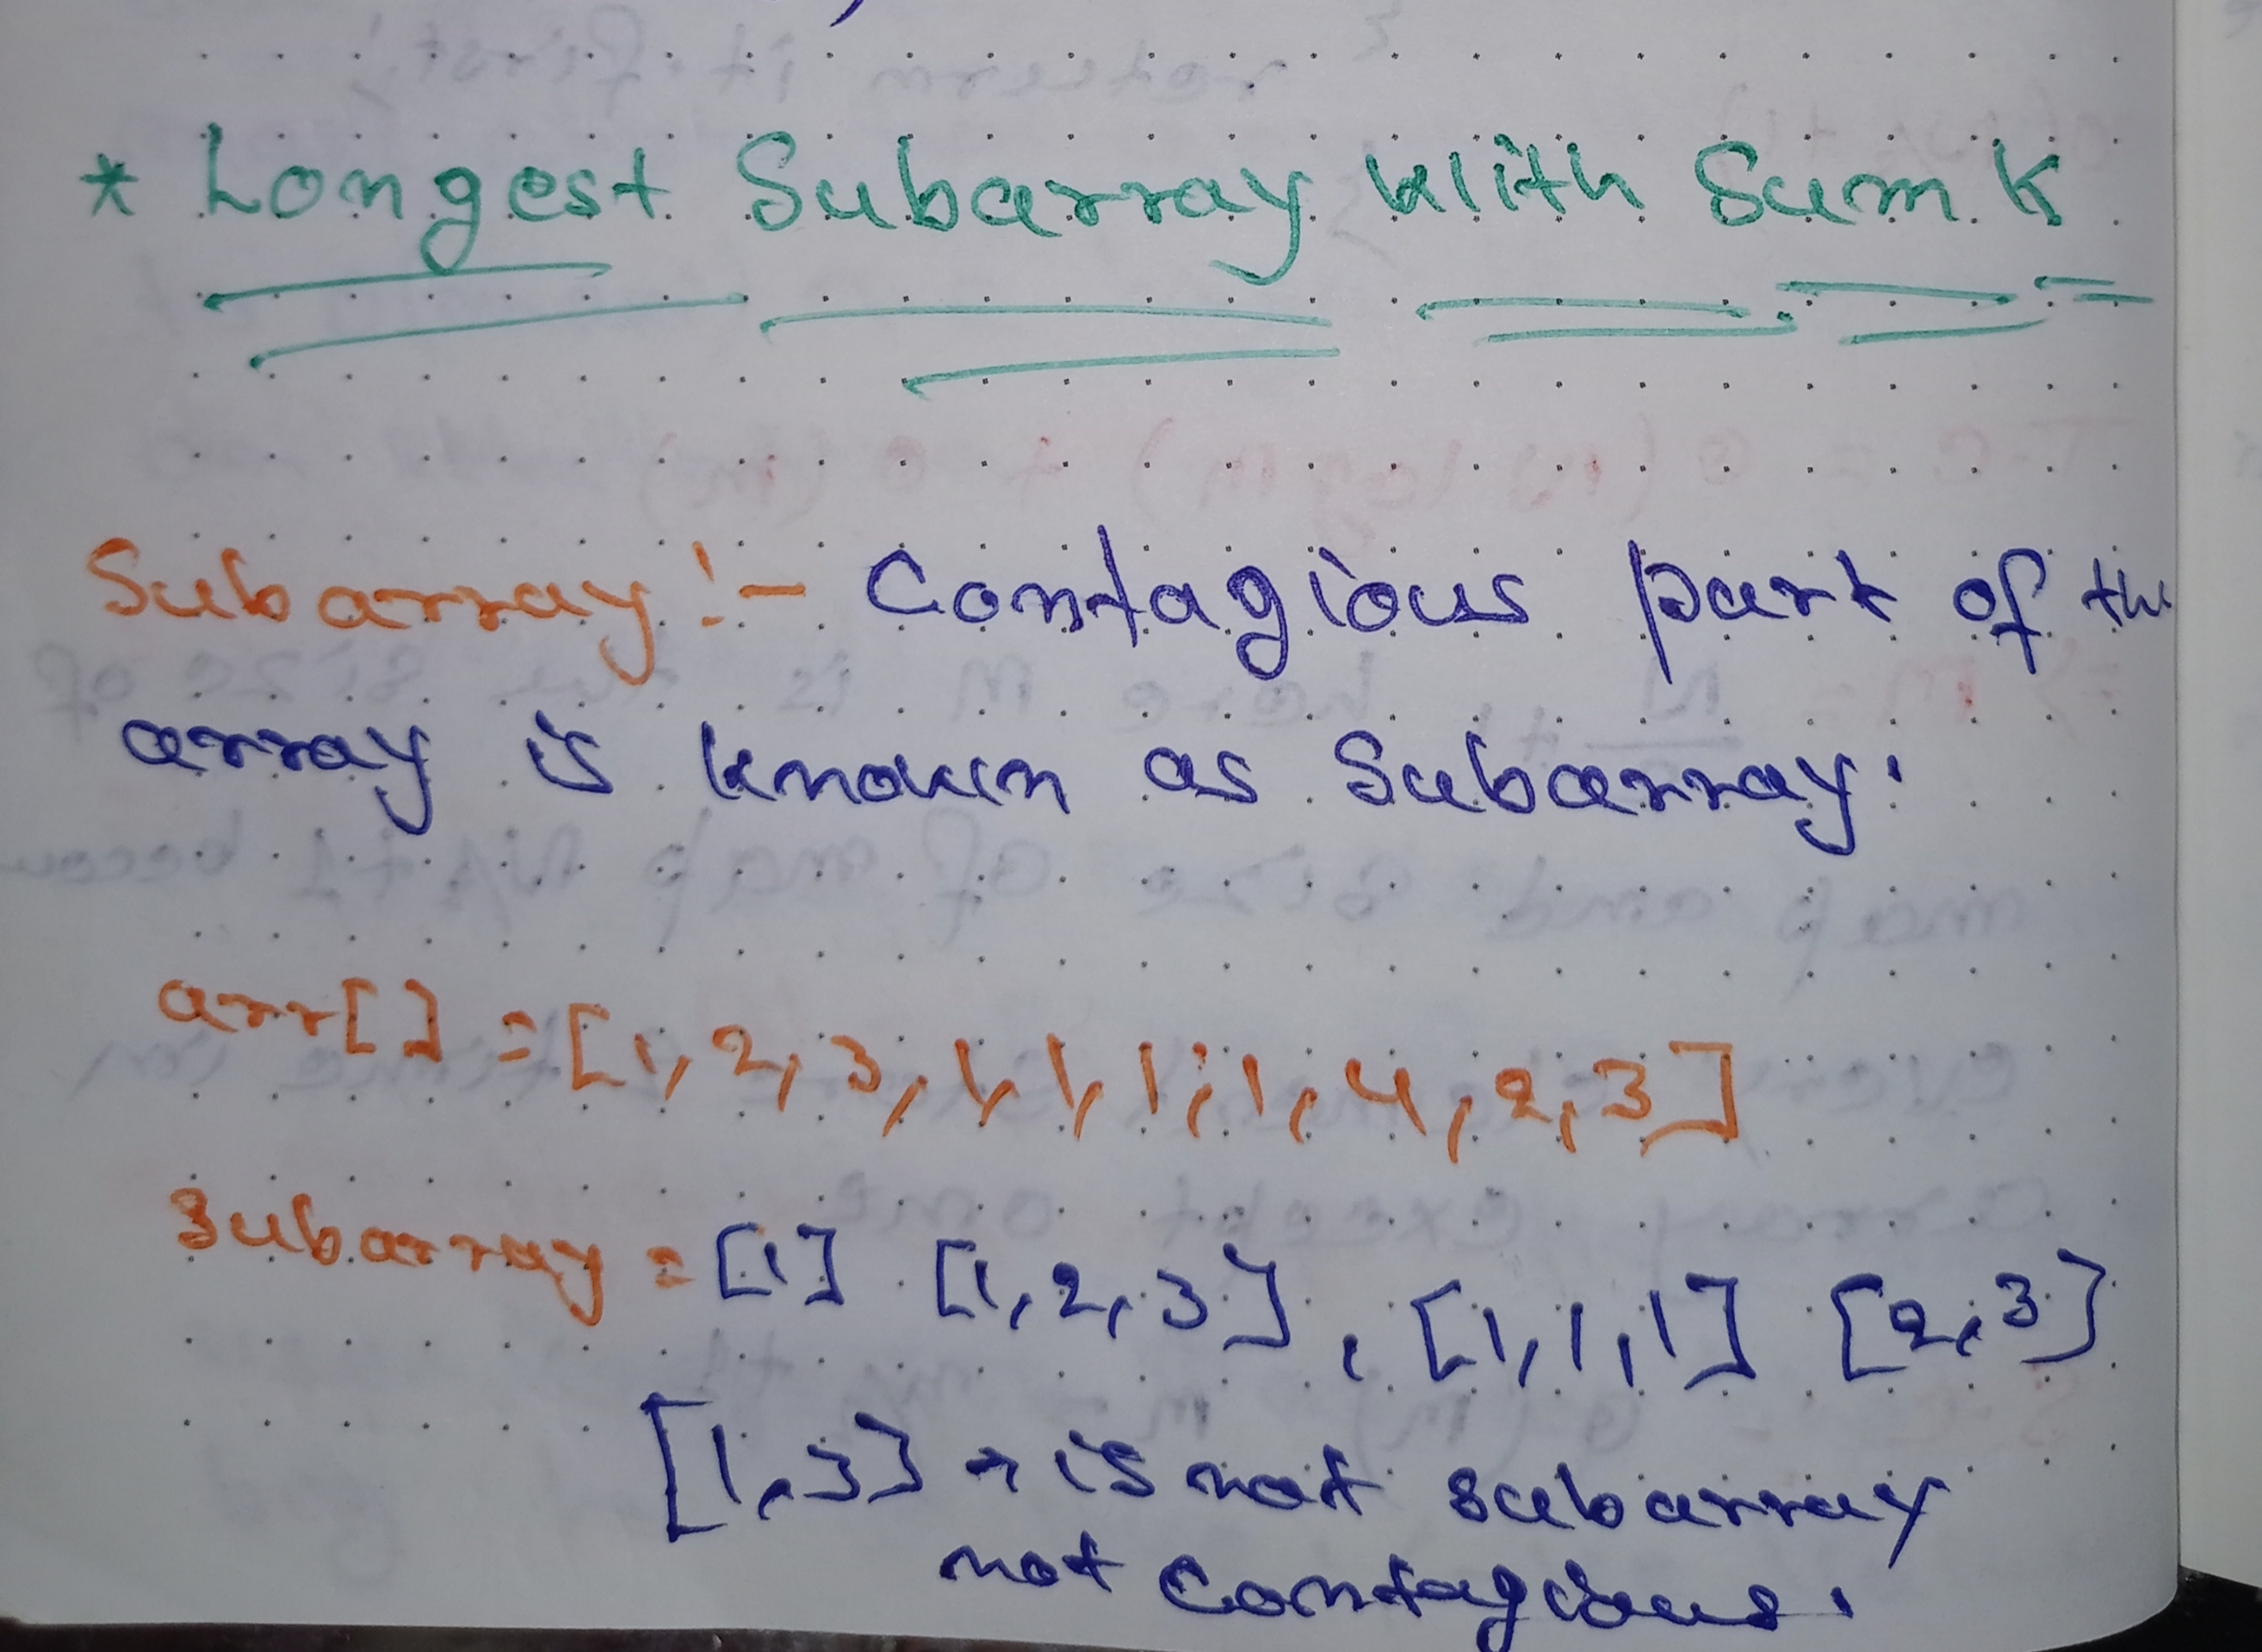 * Longest Subarray With Sum K
Subarray :- Contagious part of the
array is known as Subarray.
arr[] = [1, 2, 3, 1, 1, 1, 1, 4, 2, 3]
Subarray = [1] [1, 2, 3], [1, 1, 1] [2, 3]
[1, 3] → is not subarray
not contagious.